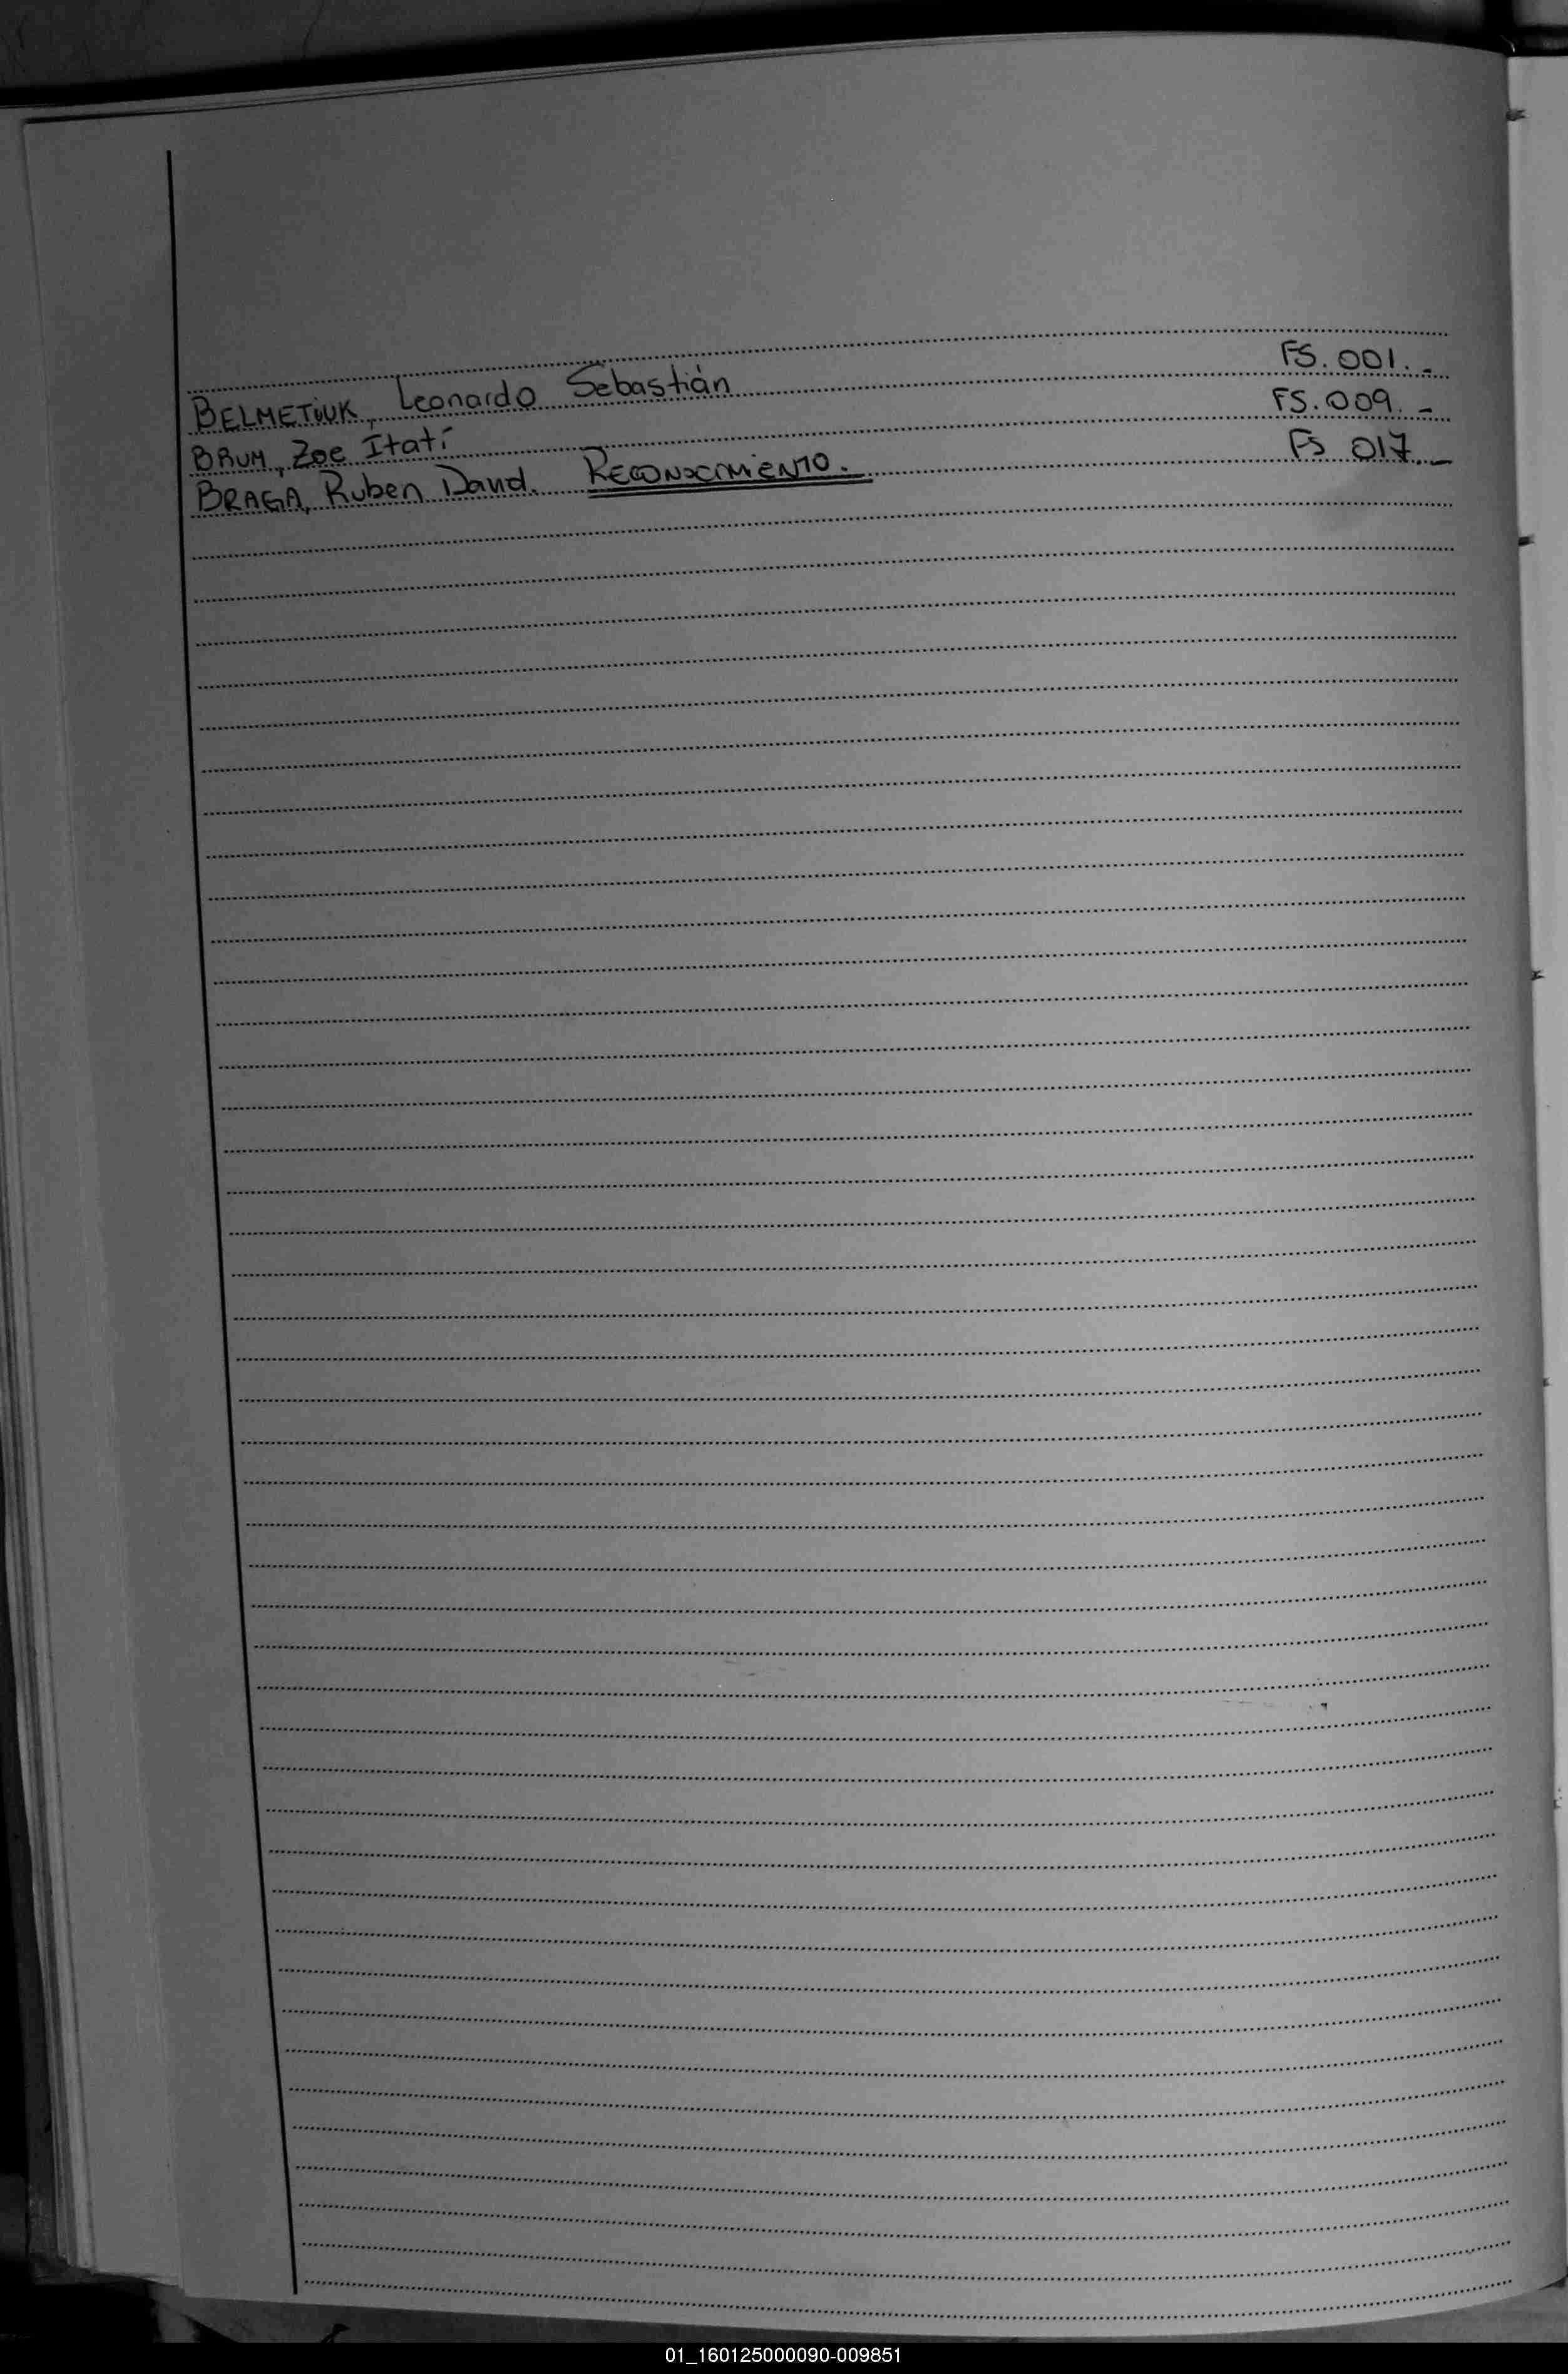 BELMETIUK, Leonardo Sebastián FS. 001. -
BRUM, Zoe Itatí FS. 009. -
BRAGA, Ruben David. RECONOCIMIENTO. FS 017. -
01_160125000090-009851